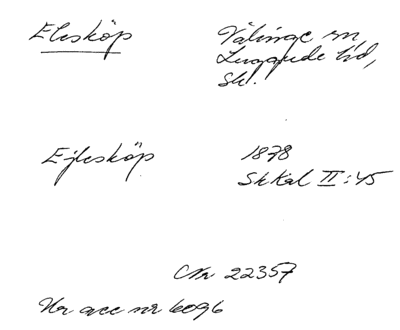 Elesköp Välinge sn,
Luggude hd,
Sk.
Ejlesköp 1878
SkKal II:45
CNr 22357
Ur acc nr 6096